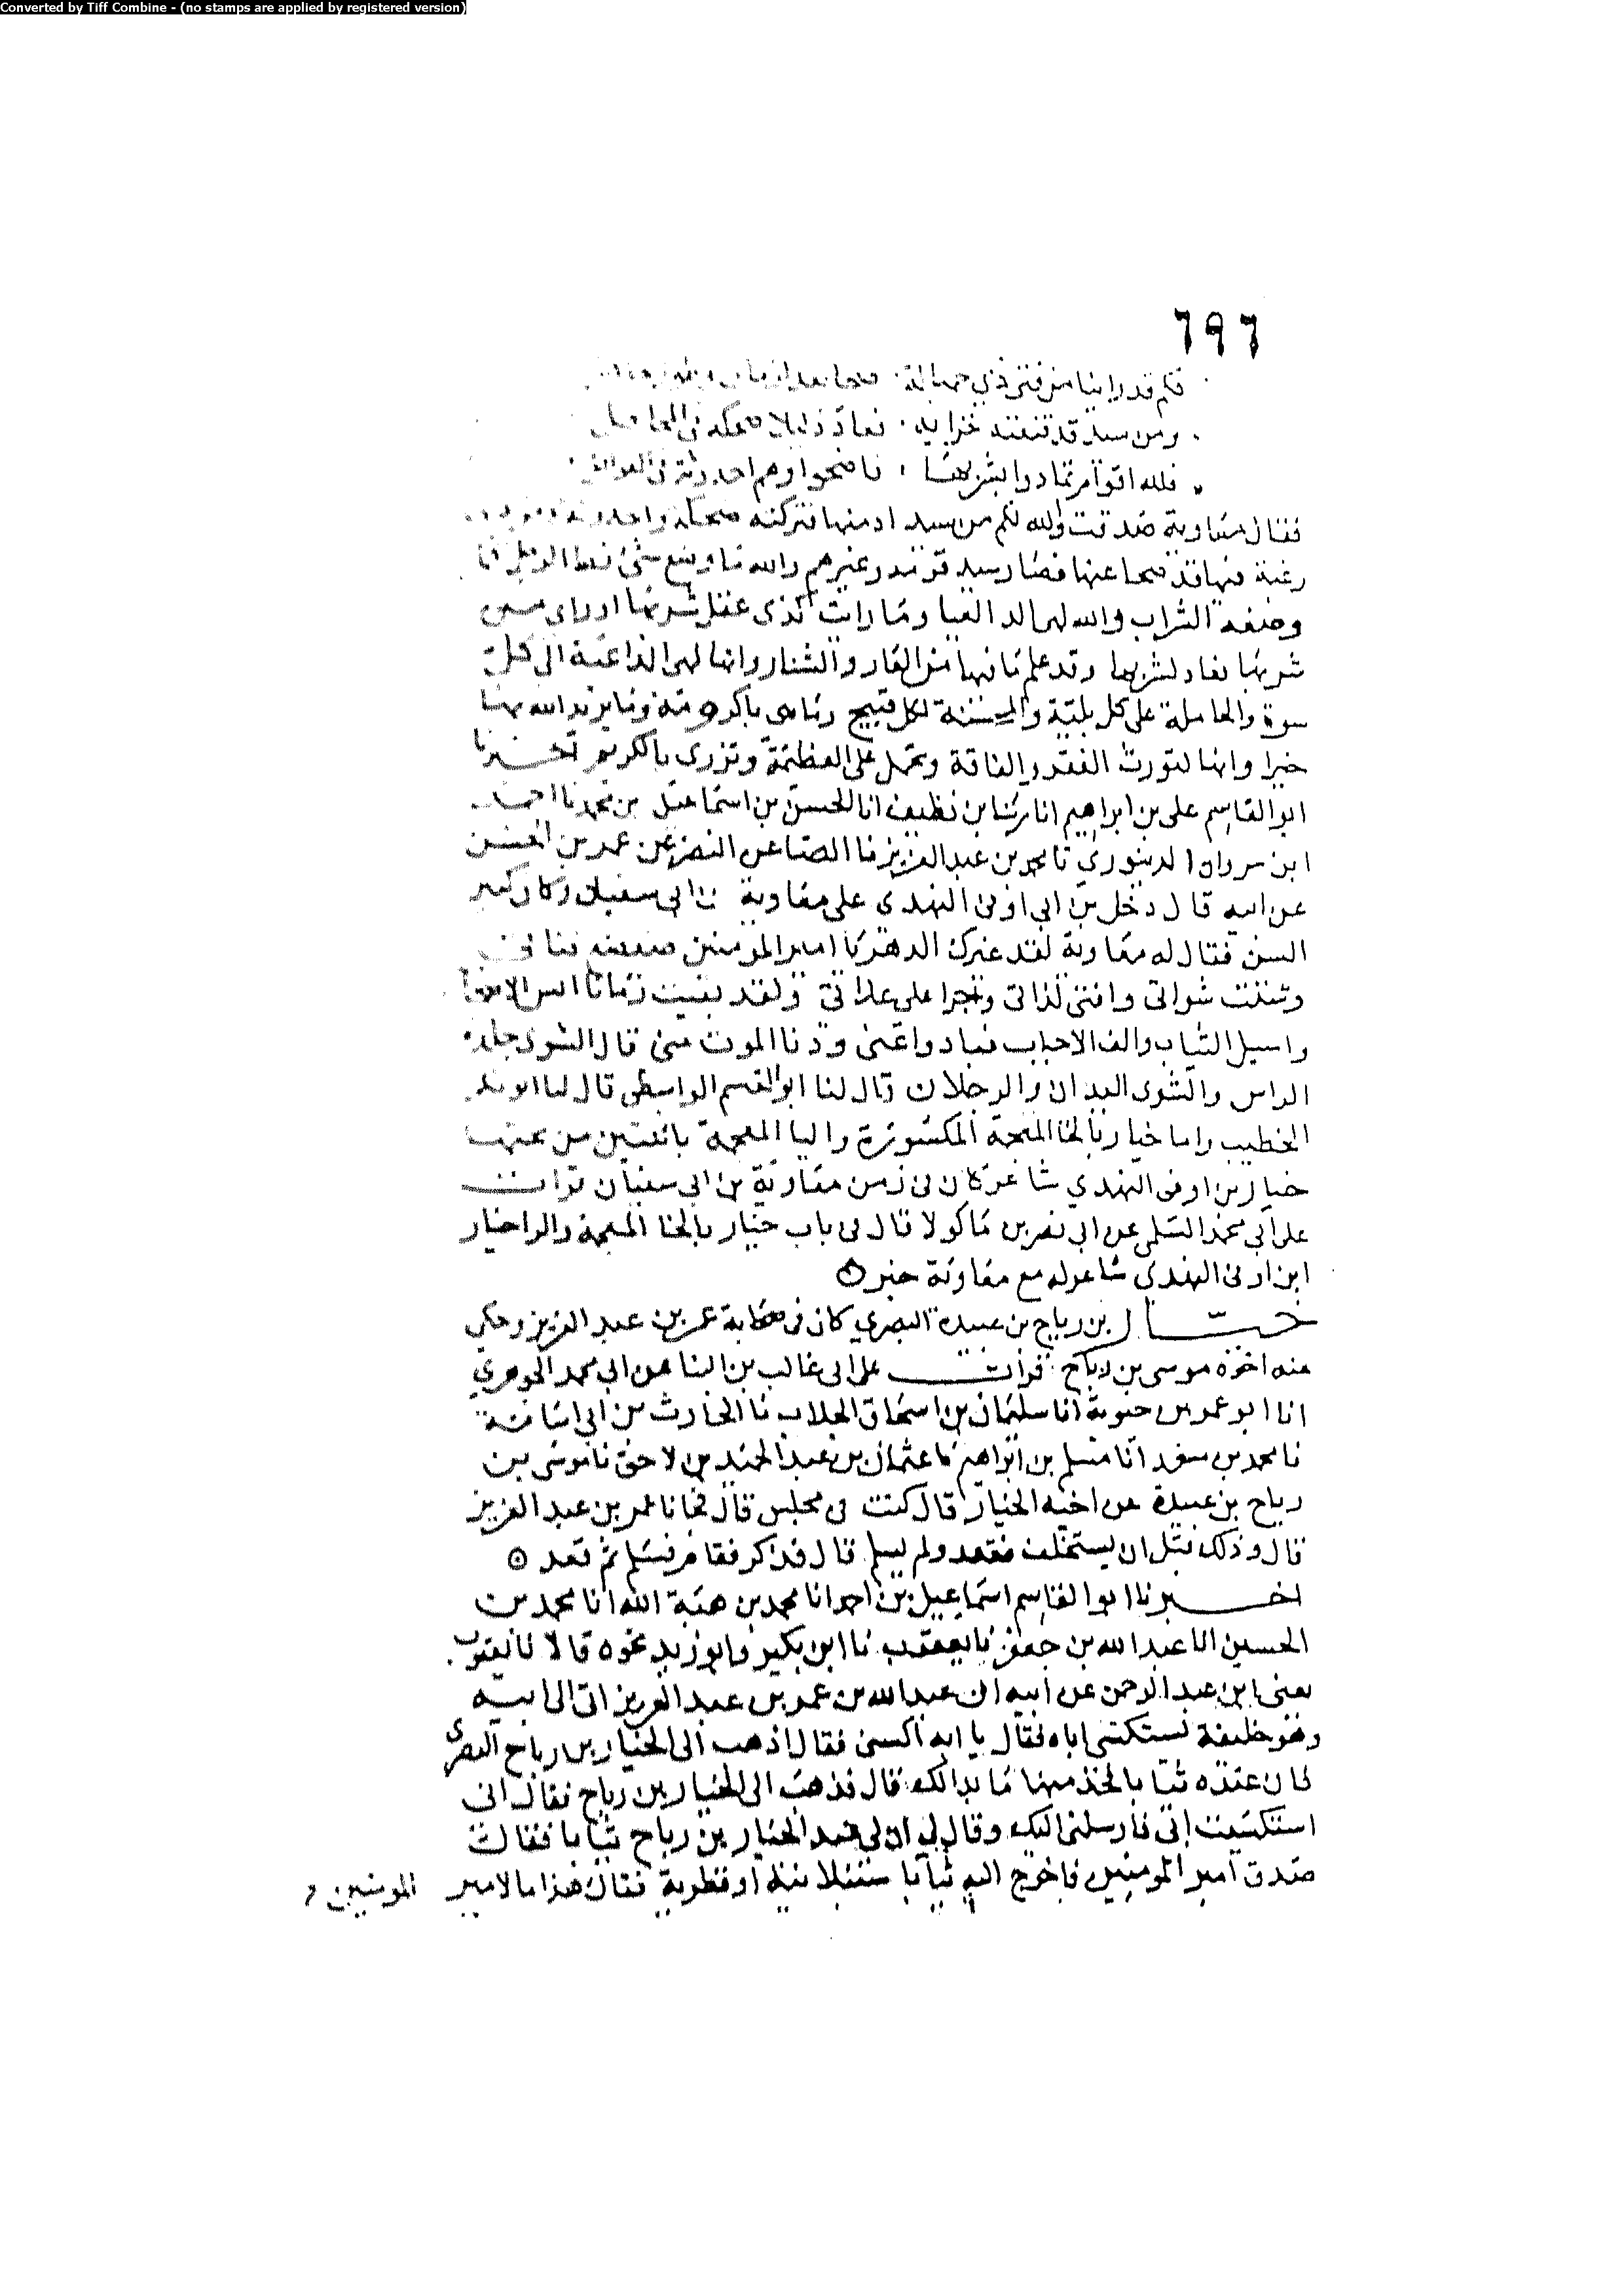 Converted by Tiff Combine - (no stamps are applied by registered version)
٦٩٦
فكم قد راينا من فتى ذي جهالة صحا بعد ازمان
ومن سيد قد تنعته خزاية فعاد ذليلا ضحكة في المحافل
فلله اقوام تمادوا بشربها فاضحوا وهم احدوثة في القوافل
فقال معاوية صدقت والله لكم من سيد ادمنها فتركته ضحكة واحدوثة
رغبة فيها قد صحا عنها فصار سيد قومه وغيرهم والله ما وضع شئ قط الرجل
وضعة الشراب والله لهي الداء العيا وما رايت كذي عقل شربها او راى من
شربها فعاد لشربها وقد علم ما فيها من العار والشنار وانها لهي الداعية الى كل
سوة والحاملة على كل بلية والمحسنة لكل قبيح وما هي باكرومة وما يريد الله بها
خيرا وانها لتورث الفقر والفاقة وتحمل على العظيمة وتزري بالكريم اخبرنا
ابو القاسم علي بن ابراهيم انا رشا بن نظيف انا الحسن بن اسماعيل بن محمد نا احمد
ابن مروان الدينوري نا محمد بن عبد العزيز نا الصاعن النضر عن عمر بن الحسن
عن ابيه قال دخل بن ابي اوفى النهدي على معاوية بن ابي سفيان وكان كبير
السن فقال له معاوية لقد غيرك الدهر يا امير المومنين ضعضع قناتي
وشنت شواتي وافنى لذاتي وجرا على عداتي ولقد بقيت زمانا انس الاصحاب
واسبل الثياب والف الاحباب فبادوا عني ودنا الموت مني قال الشوى جلدة
الراس والشوى اليدان والرجلان قال لنا ابو القسم الواسطي قال لنا ابو بكر
الخطيب واما خيار بالخا المعجمة المكسورة واليا المعجمة باثنتين من تحتها
خيار بن اوفى النهدي شاعر كان في زمن معاوية بن ابي سفيان قرات
على ابي محمد السلمي عن ابي نصر بن ماكولا قال في باب خيار بالخا المعجمة والرا خيار
ابن اوفى النهدي شاعر له مع معاوية خبر
خيار بن رياح بن عبيدة البصري كان في صحابة عمر بن عبد العزيز وحكى
عنه اخوه موسى بن رياح قرات على ابي غالب بن البنا عن ابي محمد الجوهري
انا ابو عمر بن حيوية انا سليمان بن اسحاق الجلاب نا الحارث بن ابي اسامة
نا محمد بن سعد انا مسلم بن ابراهيم نا عثمان بن عبد الحميد بن لاحق نا موسى بن
رياح بن عبيدة عن اخيه الخيار قال كنت في مجلس قال فجانا عمر بن عبد العزيز
قال وذلك قبل ان يستخلف فقعد ولم يسلم قال فذكر فقام فسلم ثم قعد
اخبرنا ابو القاسم اسماعيل بن احمد انا محمد بن هبة الله انا محمد بن
الحسين انا عبد الله بن جعفر نا يعقوب نا ابن بكير وابو زيد نحوه قالا نا يعقوب
يعني ابن عبد الرحمن عن ابيه ان عبد الله بن عمر بن عبد العزيز اتى الى ابيه
وهو خليفة يستكسي اباه فقال يا ابه اكسني فقال اذهب الى الخيار بن رياح البصري
فان عنده ثيابا فخذ منها ما بدا لك قال فذهب الى الخيار بن رياح فقال اني
استكسيت ابي فارسلني اليك وقال لي ان لي عند الخيار بن رياح ثيابا فقال
صدق امير المومنين فاخرج اليه ثيابا سنبلانية او قطرية فقال هذا ما لامير المومنين